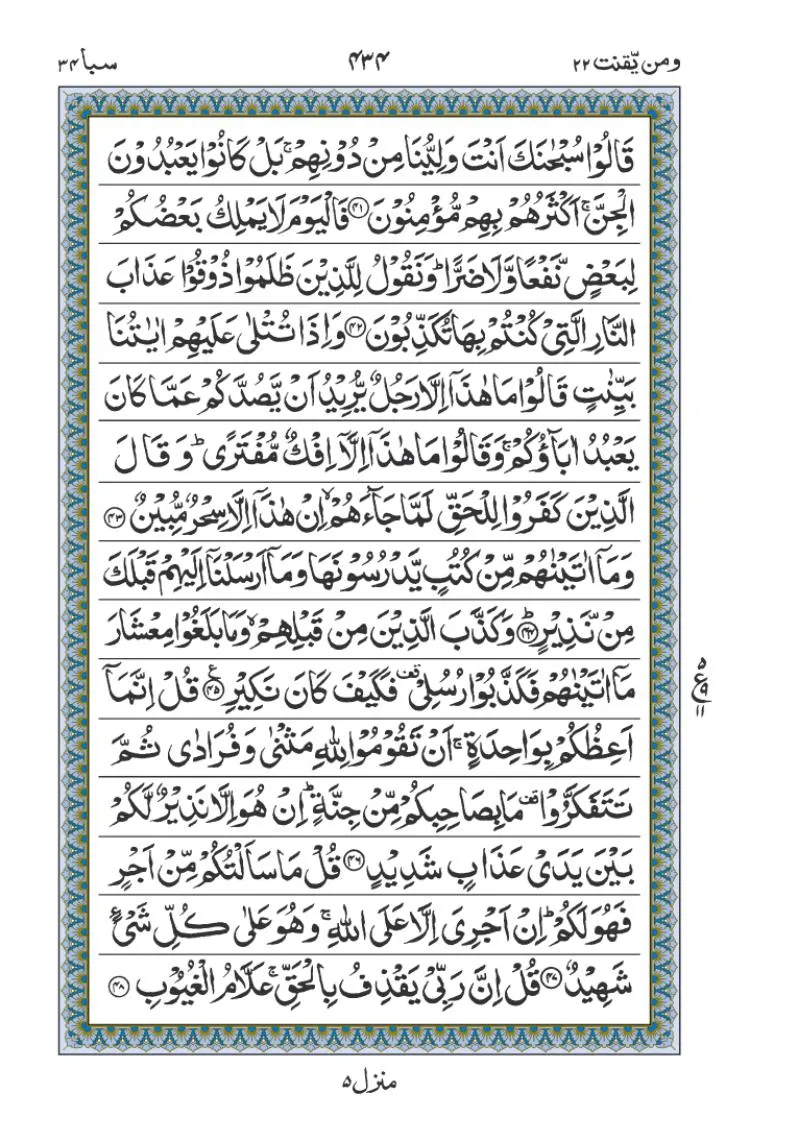 ومن یّقنت ۲۲
۴۳۴
سبا ۳۴
قَالُوْا سُبْحٰنَكَ اَنْتَ وَلِیُّنَا مِنْ دُوْنِهِمْ ۚ بَلْ كَانُوْا یَعْبُدُوْنَ
الْجِنَّ ۚ اَكْثَرُهُمْ بِهِمْ مُّؤْمِنُوْنَ ۴۱ فَالْیَوْمَ لَا یَمْلِكُ بَعْضُكُمْ
لِبَعْضٍ نَّفْعًا وَّلَا ضَرًّا ؕ وَنَقُوْلُ لِلَّذِیْنَ ظَلَمُوْا ذُوْقُوْا عَذَابَ
النَّارِ الَّتِیْ كُنْتُمْ بِهَا تُكَذِّبُوْنَ ۴۲ وَاِذَا تُتْلٰی عَلَیْهِمْ اٰیٰتُنَا
بَیِّنٰتٍ قَالُوْا مَا هٰذَاۤ اِلَّا رَجُلٌ یُّرِیْدُ اَنْ یَّصُدَّكُمْ عَمَّا كَانَ
یَعْبُدُ اٰبَآؤُكُمْ ۚ وَقَالُوْا مَا هٰذَاۤ اِلَّاۤ اِفْكٌ مُّفْتَرًی ؕ وَقَالَ
الَّذِیْنَ كَفَرُوْا لِلْحَقِّ لَمَّا جَآءَهُمْ ۙ اِنْ هٰذَاۤ اِلَّا سِحْرٌ مُّبِیْنٌ ۴۳
وَمَاۤ اٰتَیْنٰهُمْ مِّنْ كُتُبٍ یَّدْرُسُوْنَهَا وَمَاۤ اَرْسَلْنَاۤ اِلَیْهِمْ قَبْلَكَ
مِنْ نَّذِیْرٍ ؕ ۴۴ وَكَذَّبَ الَّذِیْنَ مِنْ قَبْلِهِمْ ۙ وَمَا بَلَغُوْا مِعْشَارَ
مَاۤ اٰتَیْنٰهُمْ فَكَذَّبُوْا رُسُلِیْ ۫ فَكَیْفَ كَانَ نَكِیْرِ ۴۵ قُلْ اِنَّمَاۤ
اَعِظُكُمْ بِوَاحِدَةٍ ۚ اَنْ تَقُوْمُوْا لِلّٰهِ مَثْنٰی وَفُرَادٰی ثُمَّ
تَتَفَكَّرُوْا ۫ مَا بِصَاحِبِكُمْ مِّنْ جِنَّةٍ ؕ اِنْ هُوَ اِلَّا نَذِیْرٌ لَّكُمْ
بَیْنَ یَدَیْ عَذَابٍ شَدِیْدٍ ۴۶ قُلْ مَا سَاَلْتُكُمْ مِّنْ اَجْرٍ
فَهُوَ لَكُمْ ؕ اِنْ اَجْرِیَ اِلَّا عَلَی اللّٰهِ ۚ وَهُوَ عَلٰی كُلِّ شَیْءٍ
شَهِیْدٌ ۴۷ قُلْ اِنَّ رَبِّیْ یَقْذِفُ بِالْحَقِّ ۚ عَلَّامُ الْغُیُوْبِ ۴۸
۵
ع ۹
۱۱
منزل ۵